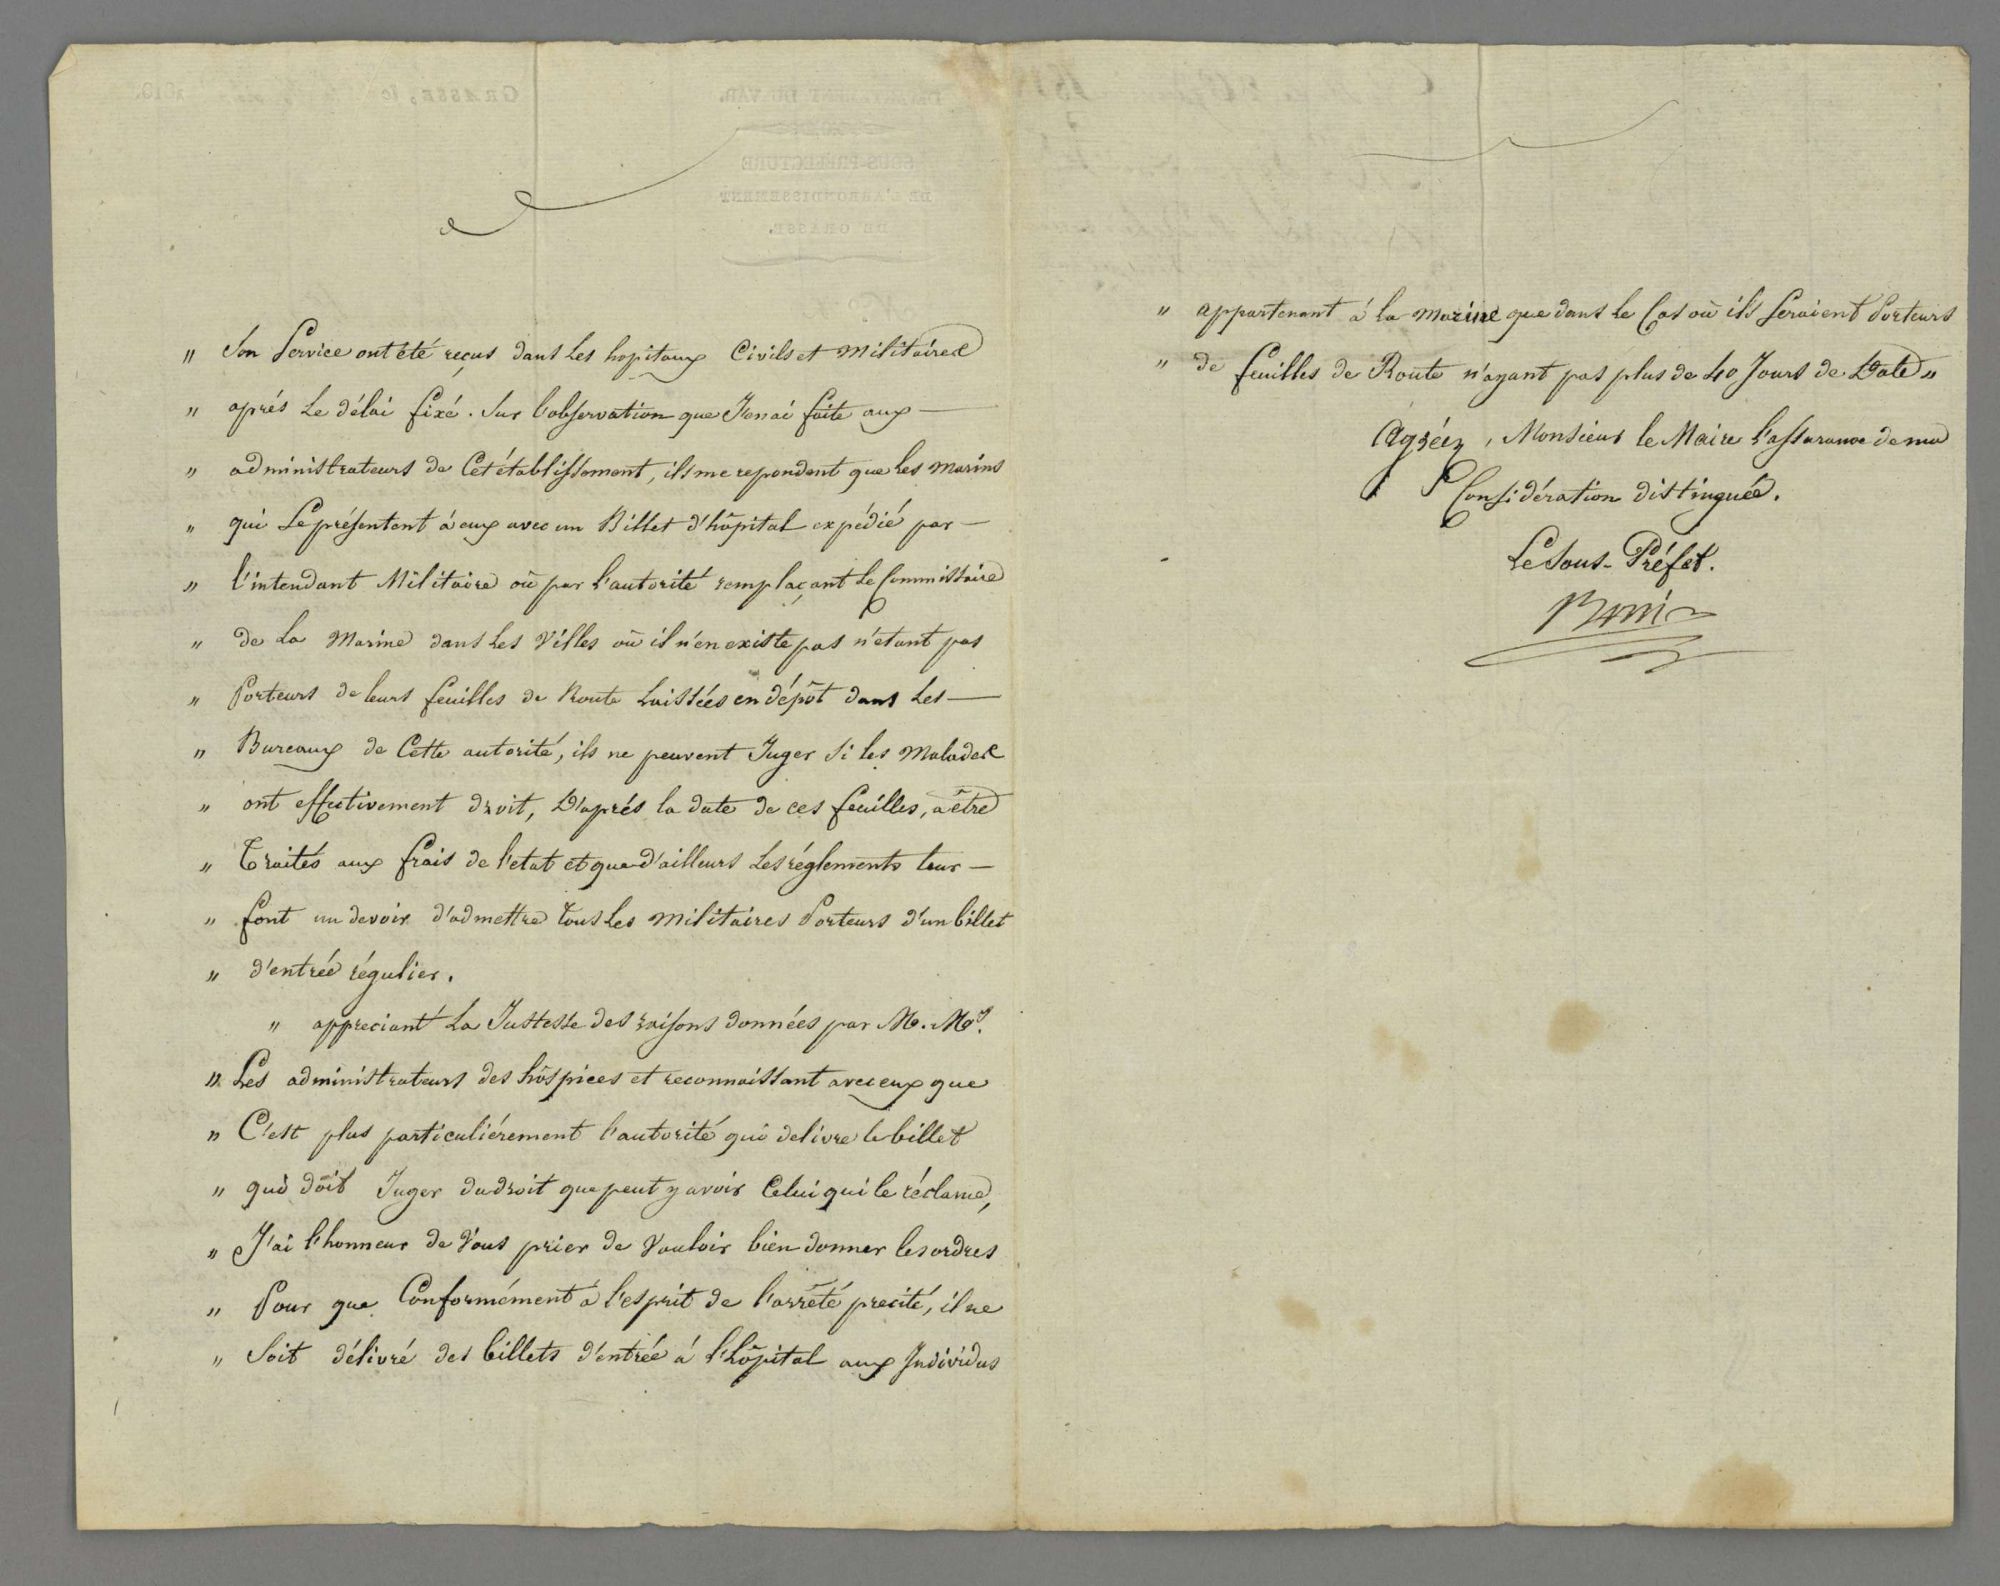 " Son Service ont été reçus dans les hopitaux Civils et Militaires
" aprés le délai fixé. Sur l'observation que J'en ai faite aux —
" administrateurs de Cet établissement, ils me repondent que les marins
" qui Se présentent à eux avec un Billet d'hôpital expédié par —
" l'intendant Militaire où par l'autorité remplaçant le Commissaire
" de la Marine dans les Villes où il n'en existe pas n'étant pas
" Porteurs de leurs feuilles de Route laissées en dépôt dans les —
" Bureaux de Cette autorité, ils ne peuvent Juger Si les Malades
" ont effectivement droit, D'aprés la date de ces feuilles, a être
" Traités aux frais de l'etat et que d'ailleurs les réglements leur —
" font un devoir d'admettre tous les militaires Porteurs d'un billet
" d'entrée régulier.
" appreciant la Justesse des raisons données par M. Mrs.
" Les administrateurs des hôspices et reconnaissant avec eux que
" C'est plus particuliérement l'autorité qui delivre le billet
" qui doit Juger du droit que peut y avoir Celui qui le réclame,
" J'ai l'honneur de Vous prier de Vouloir bien donner les ordres
" Pour que Conformément à l'esprit de l'arrêté precité, il ne
" Soit délivré des billets d'entrée à l'hôpital aux Individus
" appartenant à la marine que dans le Cas où ils Seraient Porteurs
" de feuilles de Route n'ayant pas plus de 40 Jours de Date "
Agréez, Monsieur le Maire l'assurance de ma
Considération distinguée.
Le Sous-Préfet.